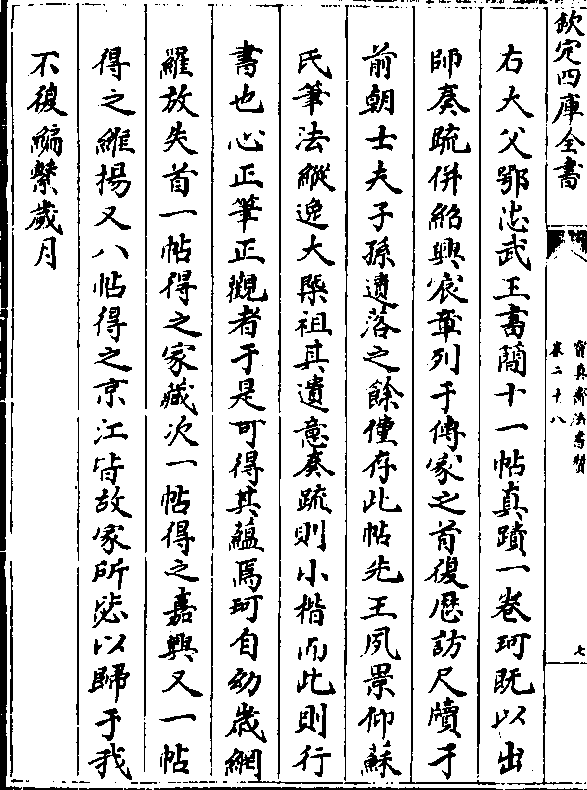 欽定四庫全書
寶真齋法書贊
卷二十八
七
右大父鄂忠武王書簡十一帖真蹟一卷珂既以出
師奏疏併紹興宸章列于傳家之首復歴訪尺牘于
前朝士夫子孫遺落之餘僅存此帖先王夙景仰蘇
氏筆法縱逸大槩祖其遺意奏疏則小楷而此則行
書也心正筆正觀者于是可得其蘊焉珂自幼歲網
羅放失首一帖得之家藏次一帖得之嘉興又一帖
得之維揚又八帖得之京江皆故家所毖以歸于我
不復編繫歲月